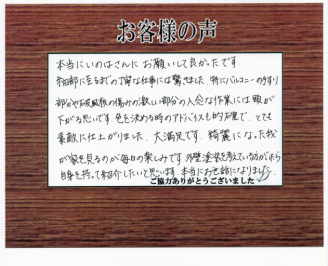 お客様の声
本当にいのはさんにお願いして良かったです。
細部に至るまでの丁寧な仕事には驚きました。特にバルコニーの手すり
部分や破風板の傷みの激しい部分の入念な作業には頭が
下がる思いです。色を決める時のアドバイスも的確で、とても
素敵に仕上がりました。大満足です。綺麗になった我
が家を見るのが毎日の楽しみです。外壁塗装を考えている方がいたら
自身を持って紹介したいと思います。本当にお世話になりました。
ご協力ありがとうございました